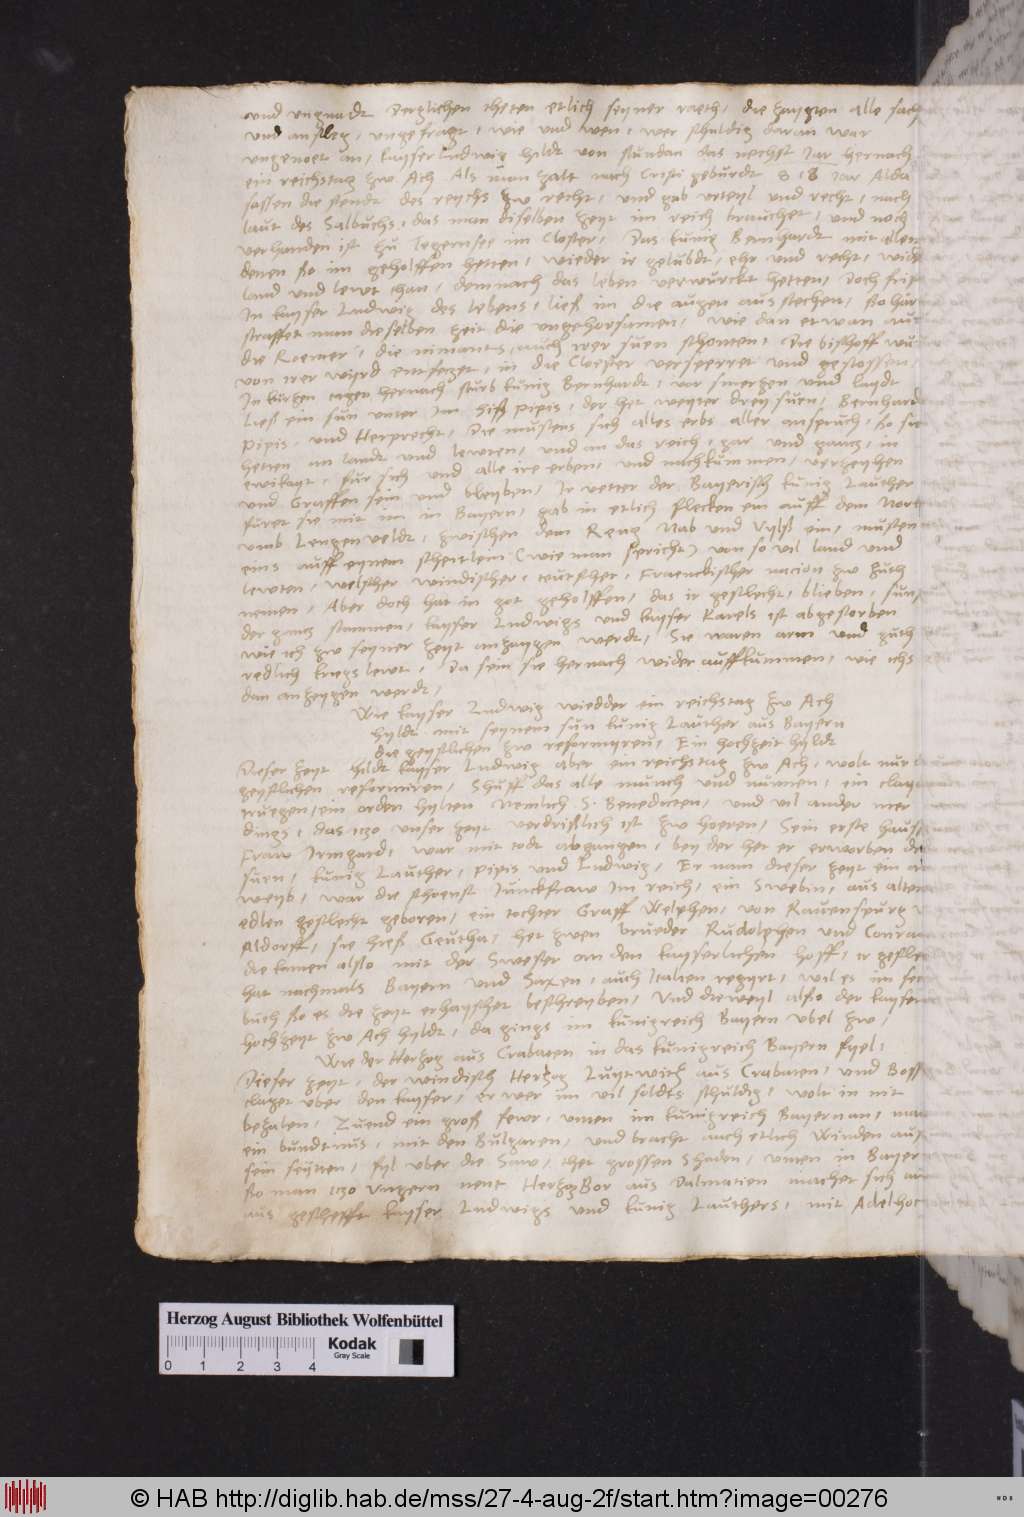 und ungnadt Derglichen theten etlich seyner raeth, die zaygten alle sach
und anschleg, ungefragt, wie und wen, wer schuldig daran war
ungenoet an, kayser Ludwig hildt von stundan das nechst Jar hernach
ein reichstag zw Ach Als man zalt nach Cristi geburdt 818 Jar Alda
sassen die stendt des reychs zw recht, und gab urteyl und recht, nach
laut des Salbuchs, das man diselben zeyt im reich brauchet, und noch
verhanden ist zu Tegernsee im Closter, Das kunig Bernhardt mit allen
denen so im geholffen hetten, wieder ir gelubdt, ehr und recht, wider
land und lewt than, demnach das leben verwurckt hetten, Doch frist
In kayser Ludwig des lebens, ließ im die augen ausstechen, so hart
straffet man dieselben zeit die ungehorsamen, wie dan etwan auch
die Roemer, die nimants, auch irer suen schonten, Die bischoff wurden
von irer wyrd entsetzet, in die Cloester versperret und gestossen,
In kurtzen tagen hernach sturb kunig Bernhardt, vor smertzen und laydt
Ließ ein sun unter Im hiß pipis, der het weyter drey suen, Bernhardt
pipis, und Herprecht, Die mustens sich alles erbs aller anspruch, so sie
hetten an landt und lewten, und an das reich, gar und gantz, in
ewikayt, fur sich und alle ire erben, und nachkummen, verzeyhen
und Graffen sein und bleyben, Ir vetter der Bayerisch kunig Lauther
furet sie mit im in Bayern, gab in etlich flecken ein auff dem Nort
umb Lengenveldt, zwischen dem Reng Nab und Vylß ein, musten
eins auff eynem scheitlein (wie man spricht) von so vil land und
lewten, welscher windischer, teutscher, Fraenckischer nacion zw gutz
nemen, Aber doch hat in got geholffen, das ir geslecht, blieben, sunst
der gantz stammen, kayser Ludwigs und kayser Karels ist abgestorben
wie ich zw seyner zeyt anzaygen werdt, Sie waren arm und guth
redlich kriegslewt, Da sein sie hernach wider auffkummen, wie ichs
dan anzeygen werdt,
Wie kayser Ludwig wiedder ein reichstag zw Ach
hyldt mit seynem sun kunig Lauther aus Bayern
die geystlichen zw reformyren, Ein hochzeit hyldt
Dieser zeyt hildt kayser Ludwig aber ein reichstag zw Ach, wolt nur die
geystlichen reformiren, Schuff das alle munch und nunnen, ein clayd
truegen, ein orden hylten Nemlich S. Benedicten, und vil ander mer
dings, das itzo unser zeyt verdrißlich ist zw hoeren, Sein erste hausf
Fraw Irmgard, war mit todt abgangen, bey der het er erworben drey
suen, kunig Lauther, pipis und Ludwig, Er nam dieser zeyt ein ander
weyb, war die schoenst Junckfraw Im reich, ein Swebin, aus altem
edlen geslecht geboren, ein tochter Graff Welphen, von Rauenspurg
Altdorff, sie hieß Geutha, het zwen brueder Rudolphen und Conraden
die kamen also mit der Swester an den kayserlichen hoff, ir geslecht
hat nachmals Bayern und Saxen, auch Italien regyrt, wil es im
buch so es die zeyt erhayschet beschreyben, Und dieweyl also der kayser
hochzeyt zw Ach hyldt, da gings im kunigreich Bayern ubel zw,
Wie der Hertzog aus Crabaten in das kunigreich Bayern fyel,
Dieser zeyt, der windisch Hertzog Luytwick aus Crabaten, und Bossen
claget uber den kayser, er wer im vil soldts schuldig, wolt in nit
bezalen, Zuend ein groß fewr, unten im kunigreich Bayern an, macht
ein bundtnus, mit den Bulgaren, und bracht auch etlich Winden auf
sein seytten, fyl uber die Saw, thet grossen shaden, unten in Bayern
so man itzo Ungern nent Hertzog Bor aus Dalmatien machet sich auf
aus gescheft kayser Ludwigs und kunig Lauthers, mit Adelhoc
Herzog August Bibliothek Wolfenbüttel
Kodak
Gray Scale
0 1 2 3 4
© HAB http://diglib.hab.de/mss/27-4-aug-2f/start.htm?image=00276